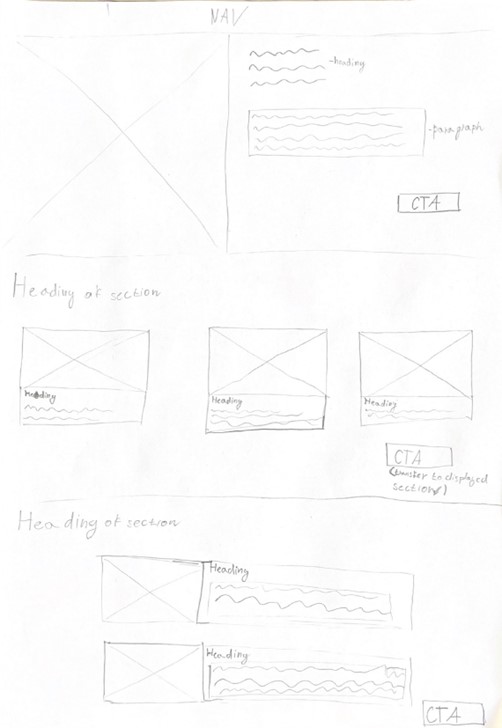 NAV
-heading
-paragraph
CTA
Heading of section
Heading
Heading
Heading
CTA
(transfer to displayed
section)
Heading of section
Heading
Heading
CTA